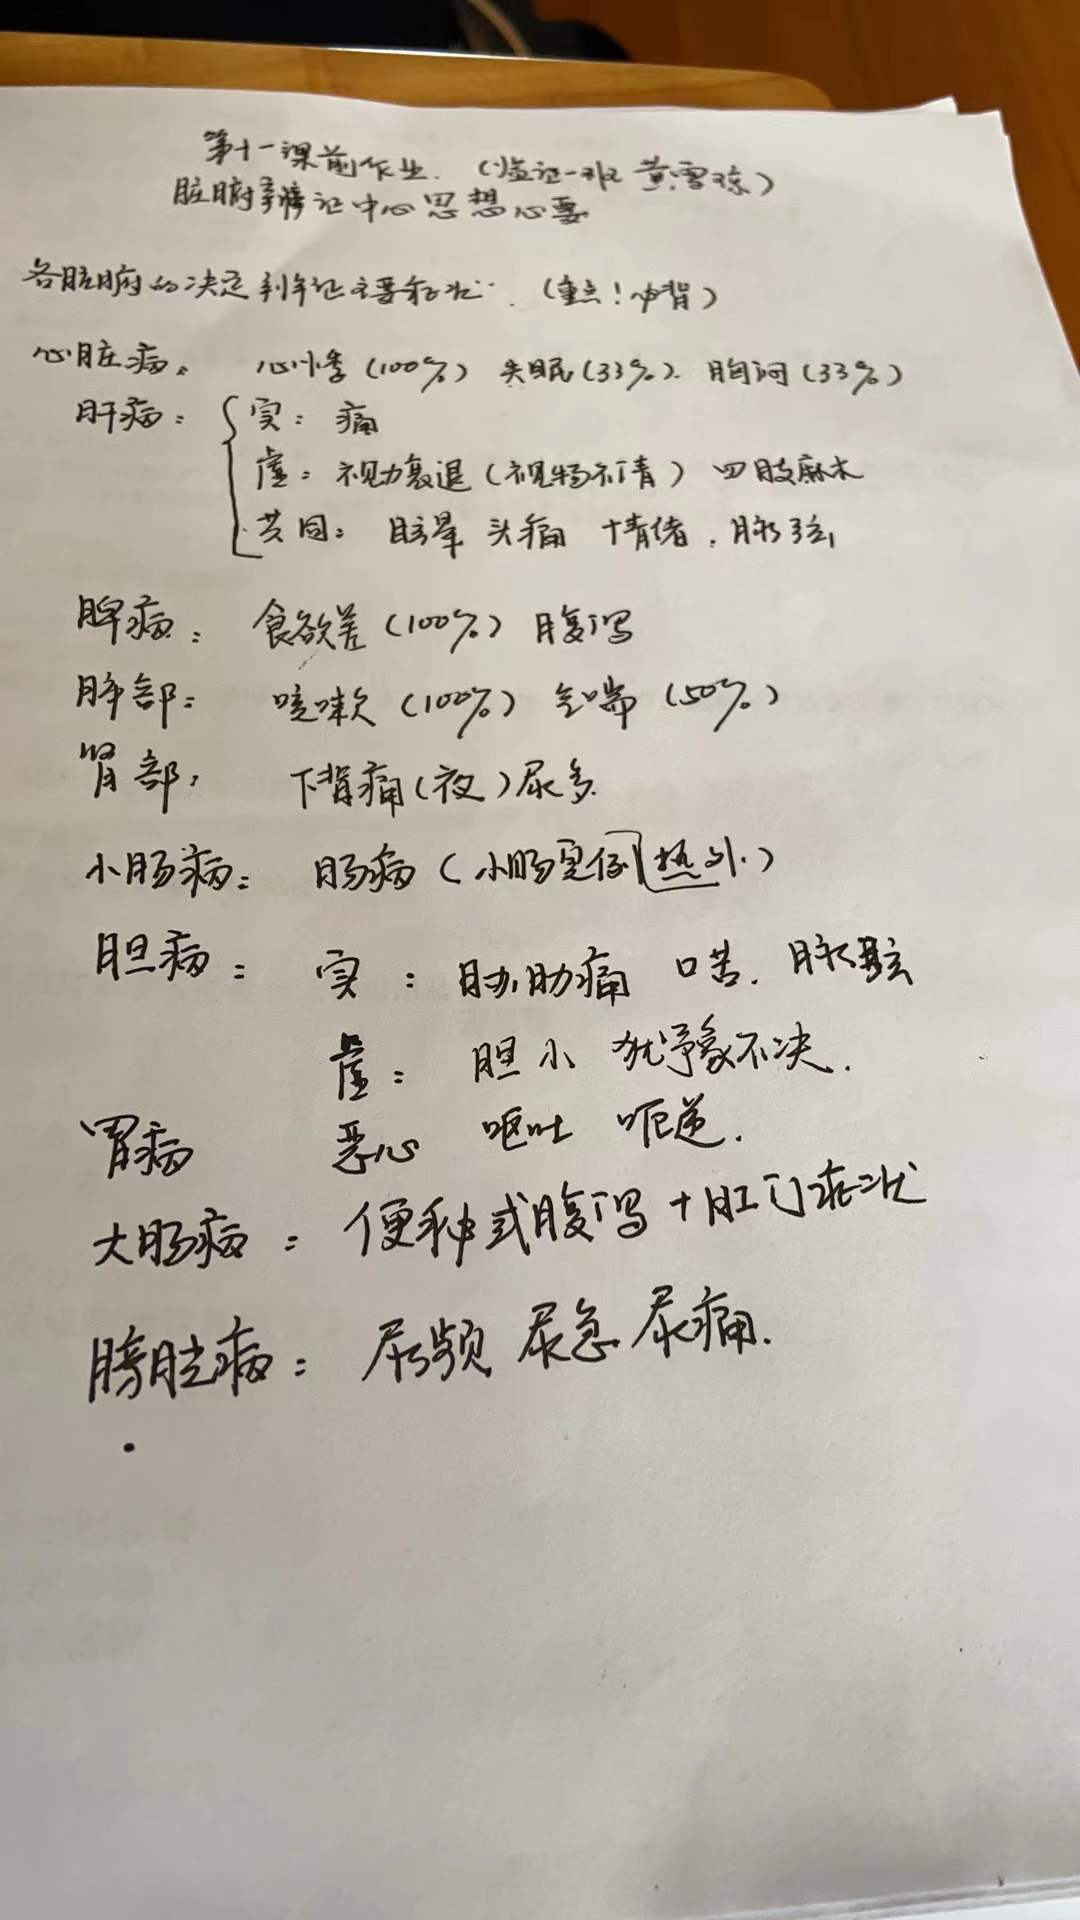 第十一课前作业.（临证一班 黄雪琼）
脏腑辨证中心思想心要
各脏腑的决定判断证主要症状.（重点！必背）
心脏病. 心悸(100%) 失眠(33%). 胸闷(33%)
肝病: 实: 痛
虚: 视力衰退(视物不清) 四肢麻木
共同: 眩晕 头痛 情绪. 脉弦
脾病: 食欲差(100%) 腹泻
肺部: 咳嗽(100%) 气喘(50%)
肾部: 下背痛(夜)尿多.
小肠病: 肠病(小肠实 热 外)
胆病: 实: 胁肋痛 口苦. 脉弦
虚: 胆小 犹豫不决.
胃病 恶心 呕吐 呃逆.
大肠病: 便秘或腹泻+肛门症状
膀胱病: 尿频 尿急 尿痛.